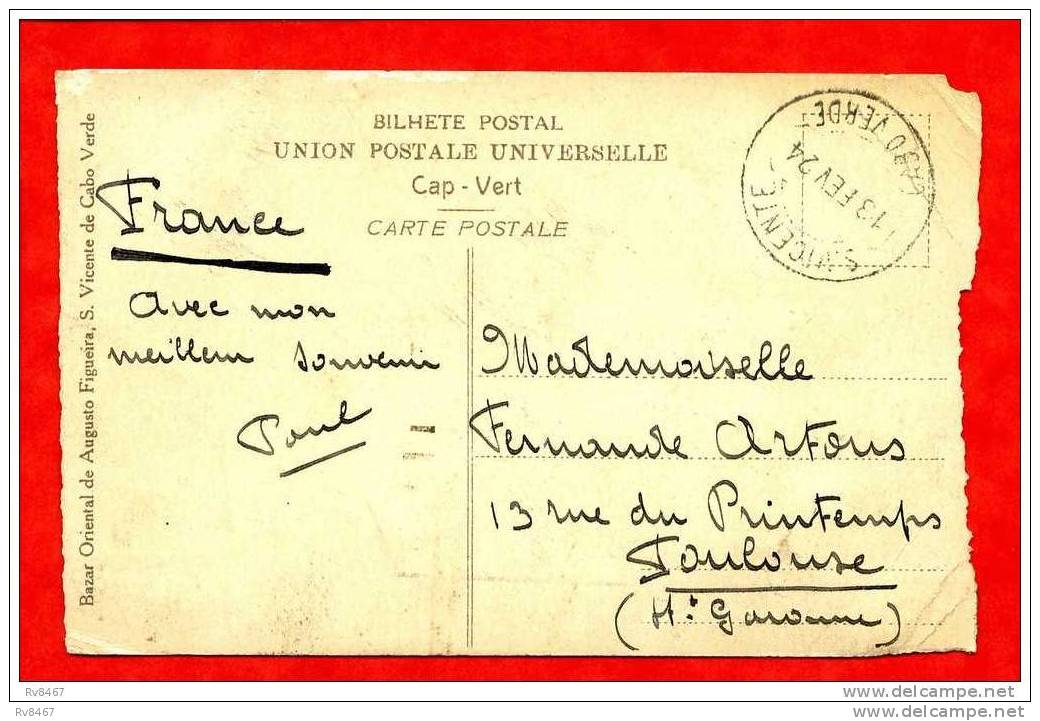 BILHETE POSTAL
UNION POSTALE UNIVERSELLE
Cap - Vert
CARTE POSTALE
S. VICENTE
13 FEV 24
CABO VERDE
Bazar Oriental de Augusto Figueira, S. Vicente de Cabo Verde
France
Avec mon
meilleur souvenir
Paul
Mademoiselle
Fernande Artous
13 rue du Printemps
Toulouse
(Hte Garonne)
Rv8467
www.delcampe.net
Rv8467
www.delcampe.net